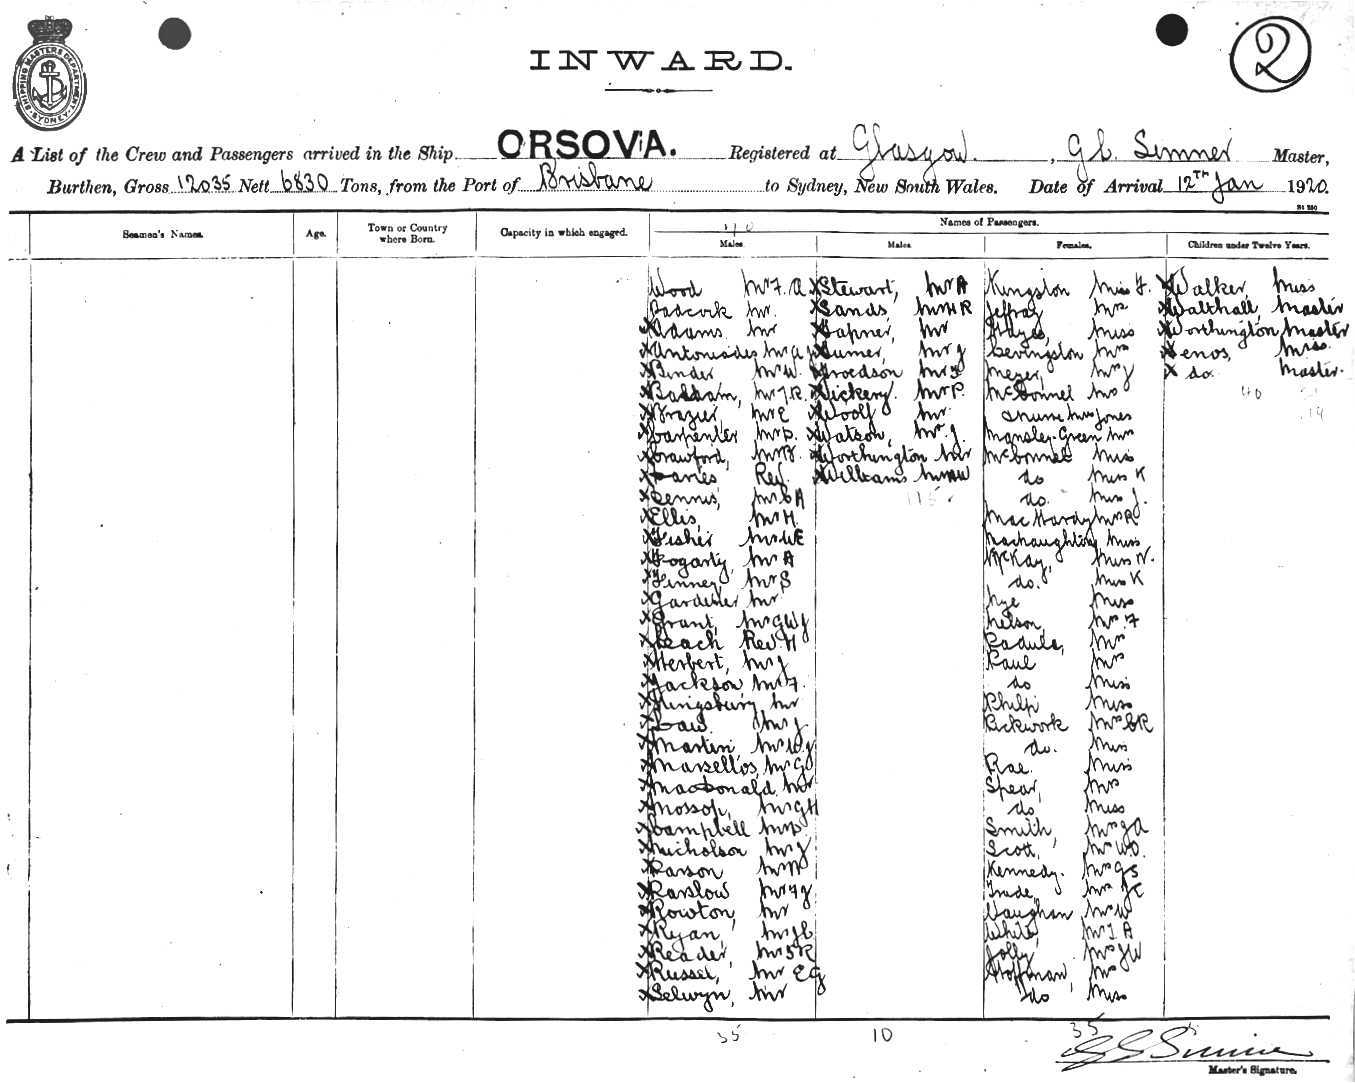 SHIPPING MASTERS DEPARTMENT SYDNEY
2
INWARD.
A List of the Crew and Passengers arrived in the Ship ORSOVA. Registered at Glasgow, Master,
Burthen, Gross 12035 Nett 6830 Tons, from the Port of Brisbane to Sydney, New South Wales. Date of Arrival 12TH Jan 1920.
Names of Passengers.
Seamen's Names. Age. Town or Country where Born. Capacity in which engaged. Males Males Females. Children under Twelve Years.
Wood Mr F. A
Badcock Mr.
Adams Mr
Antoniades Mr A J
Binder Mr W.
Mr J R.
Brazier Mr E
Carpenter Mr D.
Crawford, Mr B.
Davies Rev.
Dennis, Mr C A
Ellis, Mr H.
Fisher Mr W E
Fogarty, Mr A
Finney Mr S
Gardener Mr
Grant, Mr G W J
Leach Rev. H
Herbert, Mr J
Jackson, Mr F.
Kingsbury Mr
Law Mr J
Martin Mr W J
Marsellos, Mr G
MacDonald Mr
Mossop, Mr G H
Campbell Mr D.
Nicholson Mr J
Parson Mr W
Mr F J
Rowton, Mr
Ryan, Mr J C
Reader, Mr S R
Russel, Mr E G
Selwyn, Mr
Stewart, Mr A
Sands, Mr H R
Mr
Mr J
Mr F
Vickery. Mr P.
Woolf Mr.
Watson, Mr. J.
Worthington Mr
Williams Mr W
115
Kingston Miss F.
Jeffray Mrs
Hayes, Miss
Levingston Mrs
Meyer, Mrs J
McConnel Mrs
Jones
Mansley-Green Mrs
McConnel Miss
do Miss K
do. Miss J.
MacHardy Mrs R
MacNaughton Miss
McKay, Miss N.
do. Miss K
Nye Miss
Nelson, Mrs. F
Padula, Mrs
Paul Mrs
do Miss
Philp Miss
Pickwork Mrs C R
do. Miss
Rae. Miss
Spear, Mrs
do Miss
Smith, Mrs J A
Scott, Mrs W. O.
Kennedy. Mrs G S
Trude, Mrs
Vaughan Mrs W
White, Mrs J A
Jolly Mrs J W
Hoffman, Mrs
do Miss
Walker, Miss
Walthall, Master
Worthington Master
Enos, Miss.
do. Master.
40
35 10 35
Master's Signature.